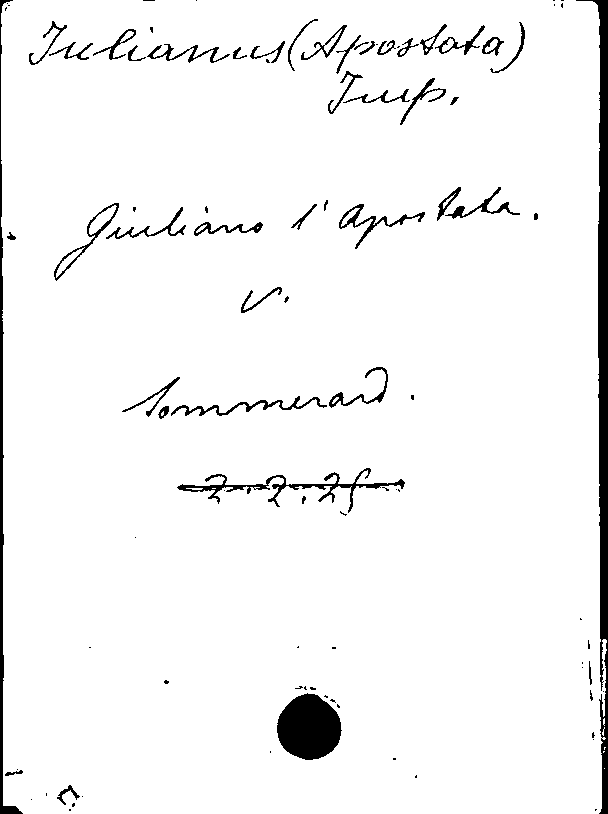 Iulianus (Apostata)
Imp.
Giuliano l'apostata.
v.
Sommerard.
2.2.25